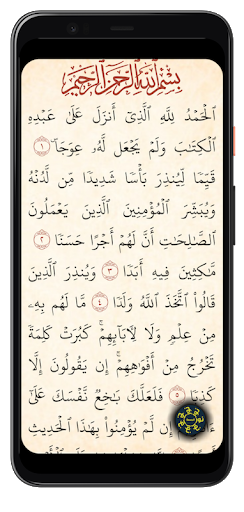 بِسْمِ ٱللَّهِ ٱلرَّحْمَٰنِ ٱلرَّحِيمِ
ٱلْحَمْدُ لِلَّهِ ٱلَّذِىٓ أَنزَلَ عَلَىٰ عَبْدِهِ
ٱلْكِتَٰبَ وَلَمْ يَجْعَل لَّهُۥ عِوَجَاۜ ١
قَيِّمًا لِّيُنذِرَ بَأْسًا شَدِيدًا مِّن لَّدُنْهُ
وَيُبَشِّرَ ٱلْمُؤْمِنِينَ ٱلَّذِينَ يَعْمَلُونَ
ٱلصَّٰلِحَٰتِ أَنَّ لَهُمْ أَجْرًا حَسَنًا ٢
مَّٰكِثِينَ فِيهِ أَبَدًا ٣ وَيُنذِرَ ٱلَّذِينَ
قَالُوا۟ ٱتَّخَذَ ٱللَّهُ وَلَدًا ٤ مَّا لَهُم بِهِۦ
مِنْ عِلْمٍ وَلَا لِـَٔابَآئِهِمْ ۚ كَبُرَتْ كَلِمَةً
تَخْرُجُ مِنْ أَفْوَٰهِهِمْ ۚ إِن يَقُولُونَ إِلَّا
كَذِبًا ٥ فَلَعَلَّكَ بَٰخِعٌ نَّفْسَكَ عَلَىٰٓ
إِن لَّمْ يُؤْمِنُوا۟ بِهَٰذَا ٱلْحَدِيثِ